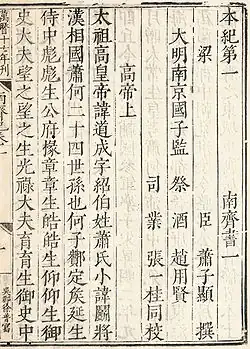 本紀第一　南齊書一
梁　臣蕭子顯　撰
大明南京國子監　祭　酒　趙用賢
司　業　張一桂同校
高帝上
太祖高皇帝諱道成字紹伯姓蕭氏小諱鬬將
漢相國蕭何二十四世孫也何子酇定矦延生
侍中彪彪生公府掾章章生皓皓生仰仰生御
史大夫望之望之生光祿大夫育育生御史中
萬曆十
年刊